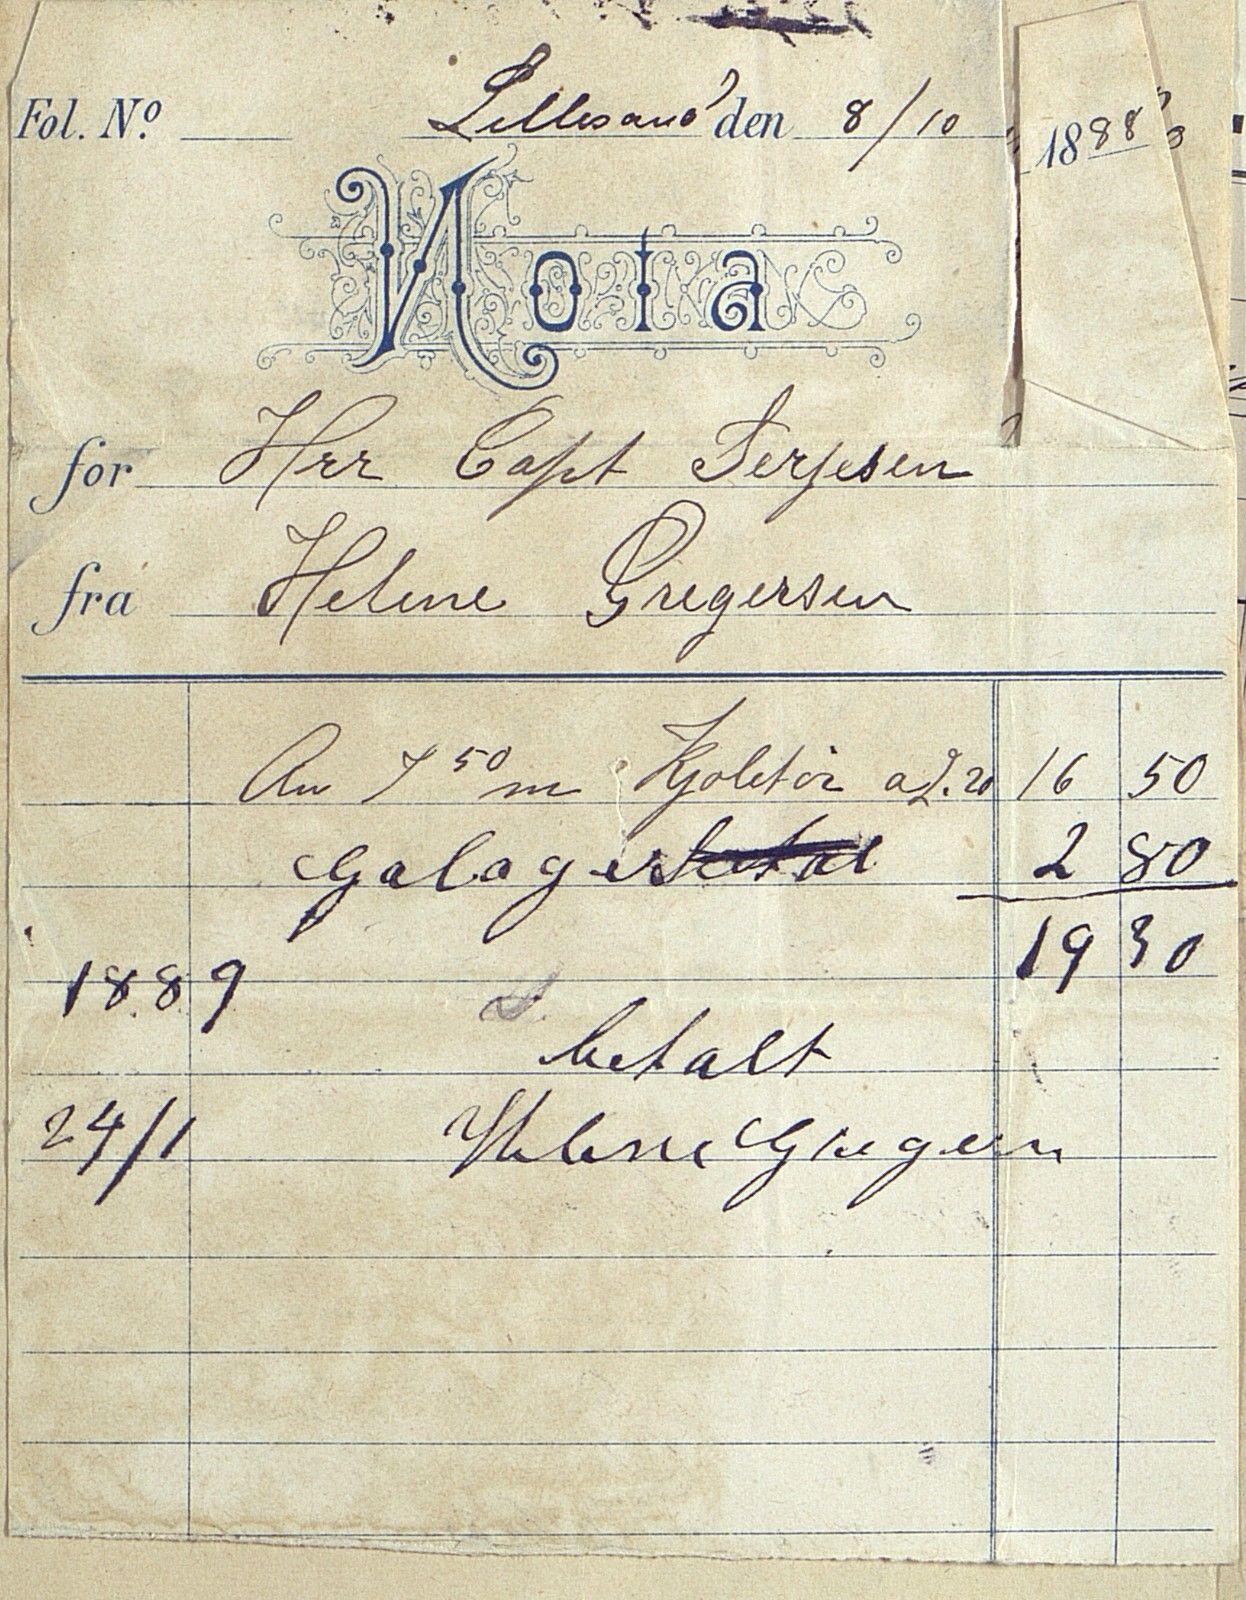 Fol. No. Lillesand den 8/10 1888
Nota
for Herr Capt Terjesen
fra Helene Gregersen
An 7 50 m Kjoletøi a 2.20 16 50
Galoger 2 80
19 30
1889
betalt
24/1 Helene Gregersen